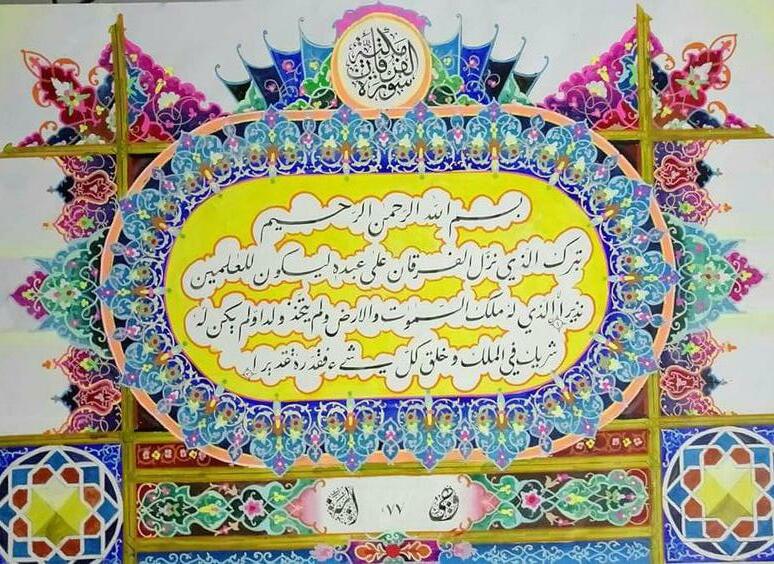 سورة الفرقان مكية
بسم الله الرحمن الرحيم
تبرك الذي نزل الفرقان على عبده ليكون للعلمين
نذيرا ١ الذي له ملك السموت والارض ولم يتخذ ولدا ولم يكن له
شريك في الملك وخلق كل شيء فقدره تقديرا
٧٧